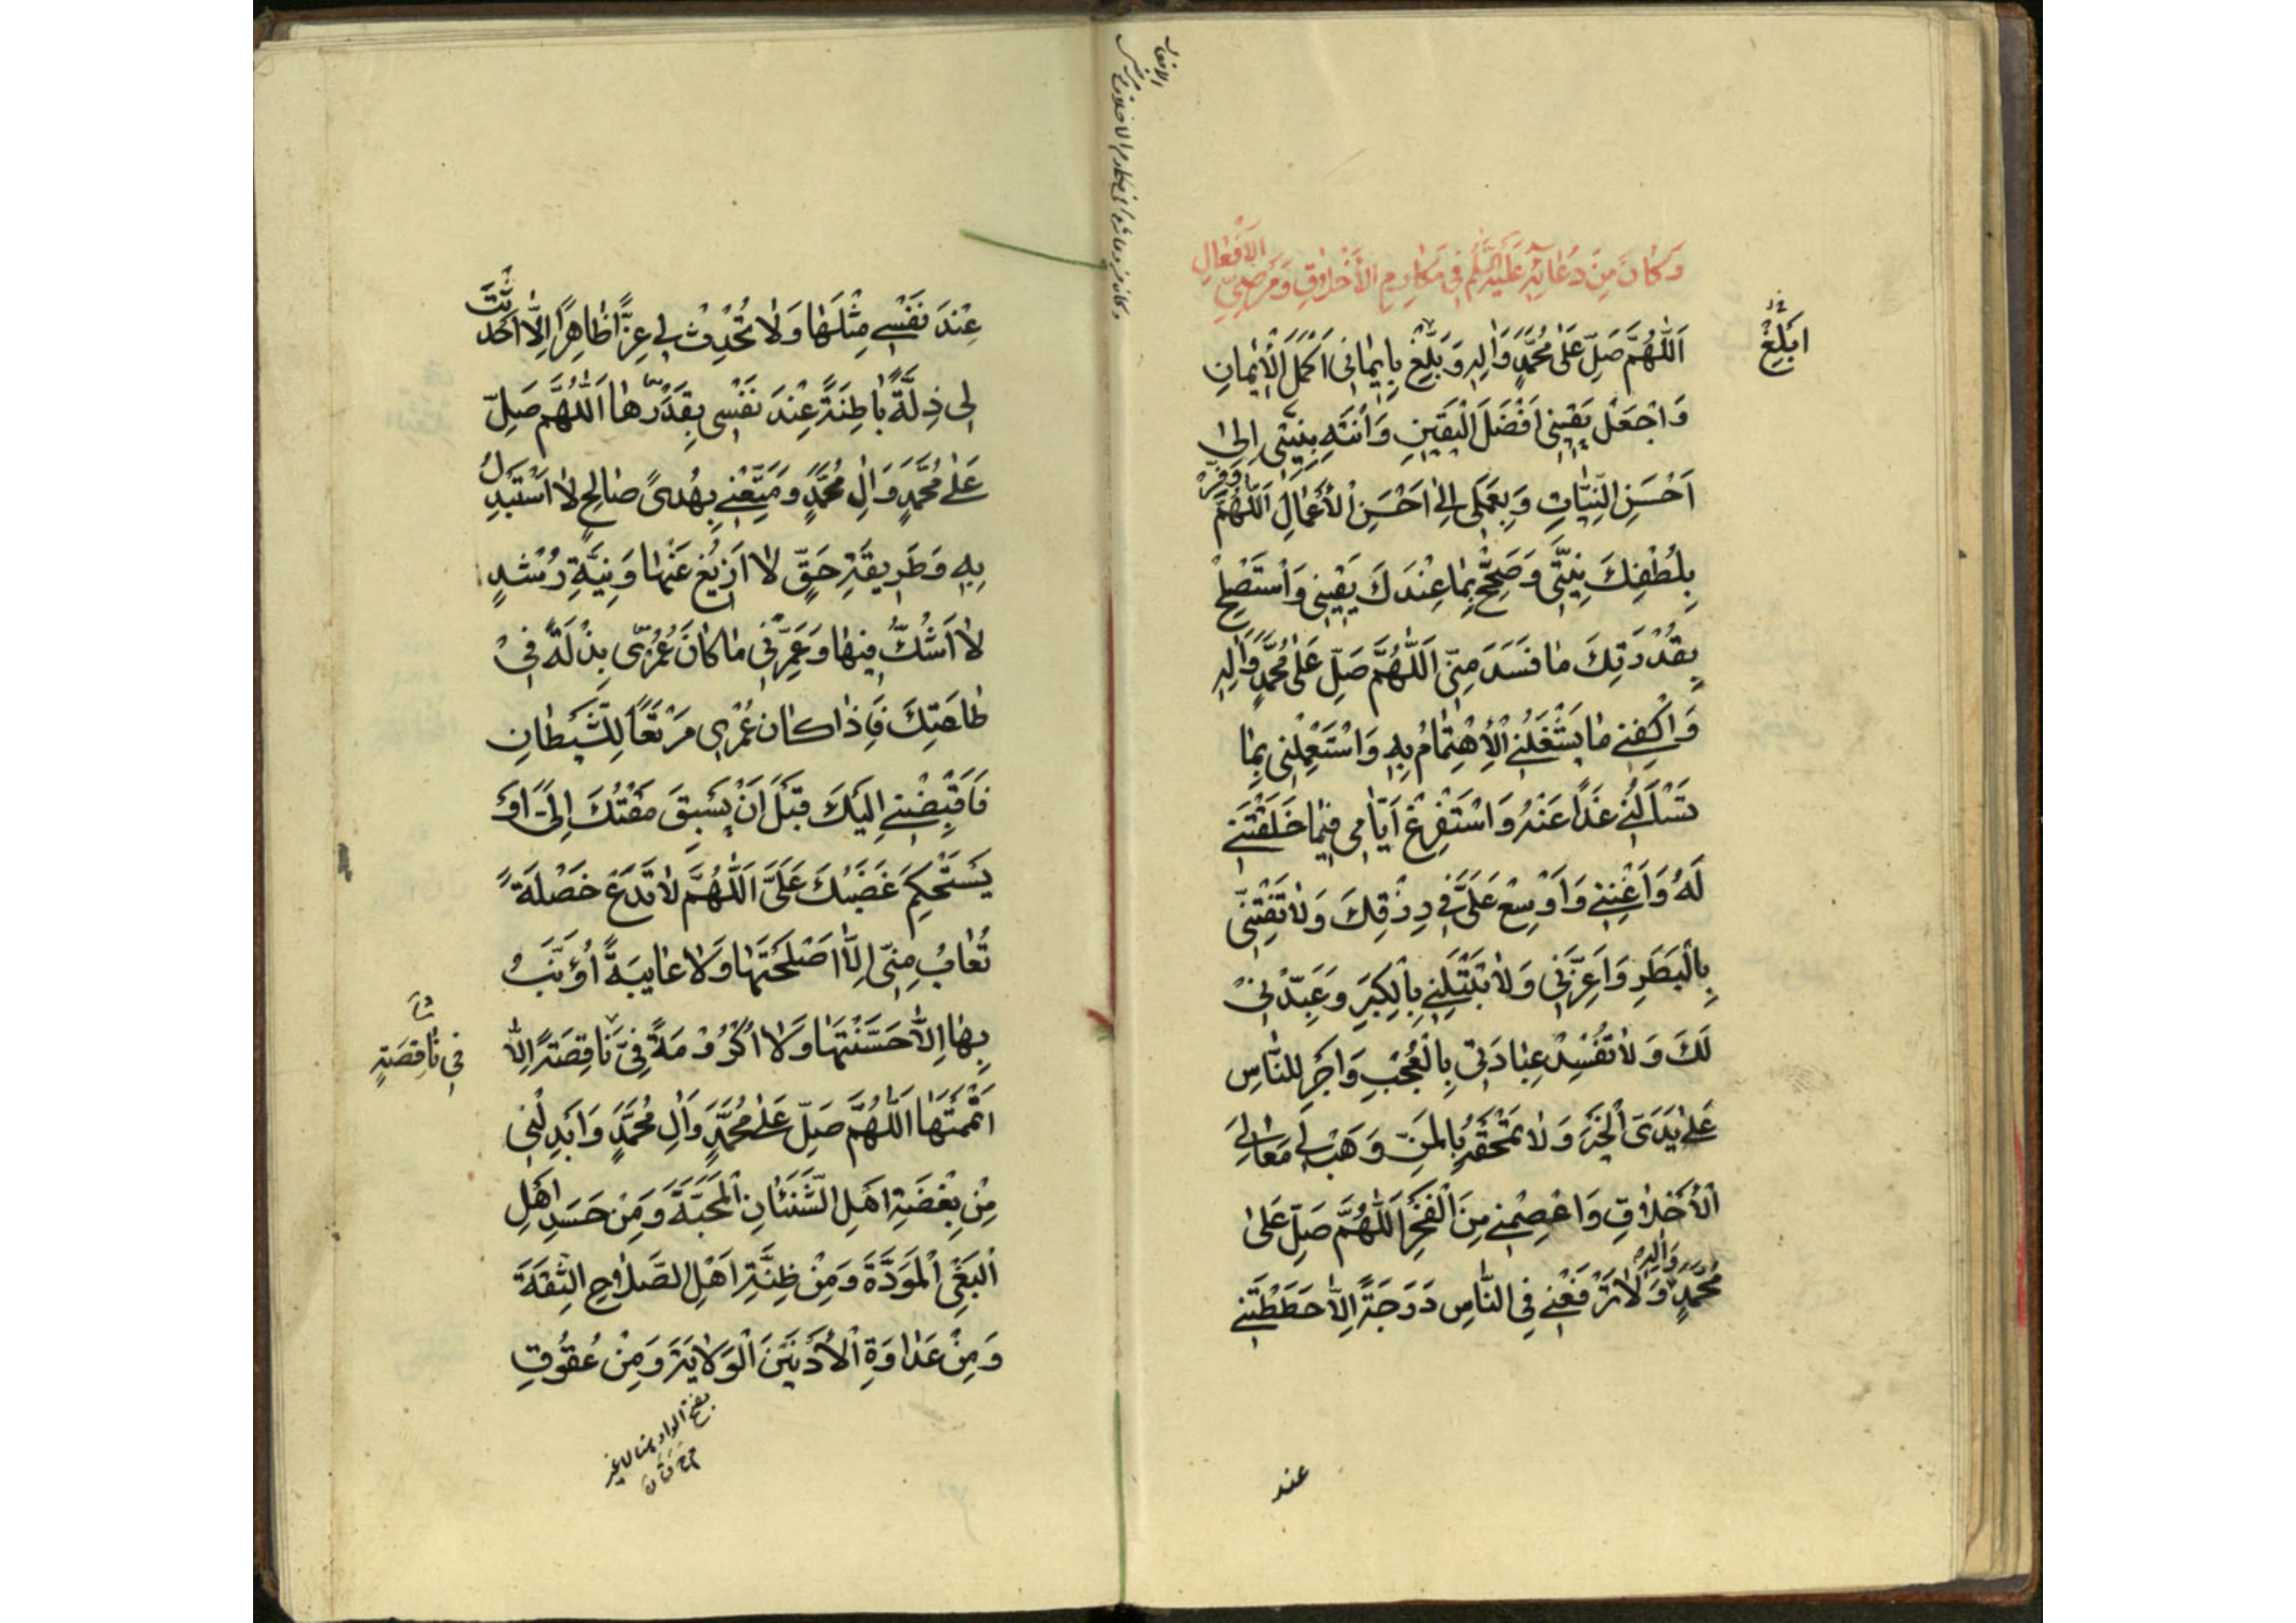 وَكَانَ مِنْ دُعَائِهِ عَلَيْهِ السَّلَمُ فِي مَكَارِمِ الْأَخْلَاقِ وَمَرْضِيِّ الْأَفْعَالِ
اَللّٰهُمَّ صَلِّ عَلٰى مُحَمَّدٍ وَاٰلِهِ وَبَلِّغْ بِاِيْمَانِى اَكْمَلَ الْاِيْمَانِ
ابْلِغْ
وَاجْعَلْ يَقِيْنِى اَفْضَلَ الْيَقِيْنِ وَانْتَهِ بِنِيَّتِى اِلٰى
اَحْسَنِ النِّيَّاتِ وَبِعَمَلِى اِلٰى اَحْسَنِ الْاَعْمَالِ اَللّٰهُمَّ وَفِّرْ
بِلُطْفِكَ نِيَّتِى وَصَحِّحْ بِمَا عِنْدَكَ يَقِيْنِى وَاسْتَصْلِحْ
بِقُدْرَتِكَ مَا فَسَدَ مِنِّى اَللّٰهُمَّ صَلِّ عَلٰى مُحَمَّدٍ وَاٰلِهِ
وَاكْفِنِى مَا يَشْغَلُنِى الْاِهْتِمَامُ بِهِ وَاسْتَعْمِلْنِى بِمَا
تَسْاَلُنِى غَدًا عَنْهُ وَاسْتَفْرِغْ اَيَّامِى فِيْمَا خَلَقْتَنِى
لَهُ وَاَغْنِنِى وَاَوْسِعْ عَلَىَّ فِى رِزْقِكَ وَلَا تَفْتِنِّى
بِالْبَطَرِ وَاَعِزَّنِى وَلَا تَبْتَلِنِى بِالْكِبَرِ وَعَبِّدْنِى
لَكَ وَلَا تُفْسِدْ عِبَادَتِى بِالْعُجْبِ وَاَجْرِ لِلنَّاسِ
عَلٰى يَدَىَّ الْخَيْرَ وَلَا تَمْحَقْهُ بِالْمَنِّ وَهَبْ لِى مَعَالِىَ
الْاَخْلَاقِ وَاعْصِمْنِى مِنَ الْفَخْرِ اَللّٰهُمَّ صَلِّ عَلٰى
مُحَمَّدٍ وَاٰلِهِ وَلَا تَرْفَعْنِى فِى النَّاسِ دَرَجَةً اِلَّا حَطَطْتَنِى
عند
عِنْدَ نَفْسِى مِثْلَهَا وَلَا تُحْدِثْ لِى عِزًّا ظَاهِرًا اِلَّا اَحْدَثْتَ
لِى ذِلَّةً بَاطِنَةً عِنْدَ نَفْسِى بِقَدَرِهَا اَللّٰهُمَّ صَلِّ
عَلٰى مُحَمَّدٍ وَاٰلِ مُحَمَّدٍ وَمَتِّعْنِى بِهُدًى صَالِحٍ لَا اَسْتَبْدِلُ
بِهِ وَطَرِيقَةِ حَقٍّ لَا اَزِيْغُ عَنْهَا وَنِيَّةِ رُشْدٍ
لَا اَشُكُّ فِيْهَا وَعَمِّرْنِى مَا كَانَ عُمُرِى بِذْلَةً فِىْ
طَاعَتِكَ فَاِذَا كَانَ عُمْرِى مَرْتَعًا لِلشَّيْطَانِ
فَاقْبِضْنِى اِلَيْكَ قَبْلَ اَنْ يَسْبِقَ مَقْتُكَ اِلَىَّ اَوْ
يَسْتَحْكِمَ غَضَبُكَ عَلَىَّ اَللّٰهُمَّ لَا تَدَعْ خَصْلَةً
تُعَابُ مِنِّى اِلَّا اَصْلَحْتَهَا وَلَا عَايِبَةً اُؤَنَّبُ
بِهَا اِلَّا حَسَّنْتَهَا وَلَا اُكْرُوْمَةً فِىَّ نَاقِصَةً اِلَّا
فِى نَاقِصَةٍ
اَتْمَمْتَهَا اَللّٰهُمَّ صَلِّ عَلٰى مُحَمَّدٍ وَاٰلِ مُحَمَّدٍ وَاَبْدِلْنِى
مِنْ بِغْضَةِ اَهْلِ الشَّنَئَانِ الْمَحَبَّةَ وَمِنْ حَسَدِ اَهْلِ
الْبَغْىِ الْمَوَدَّةَ وَمِنْ ظِنَّةِ اَهْلِ الصَّلَاحِ الثِّقَةَ
وَمِنْ عَدَاوَةِ الْاَدْنَيْنَ الْوَلَايَةَ وَمِنْ عُقُوْقِ
بفتح الواو